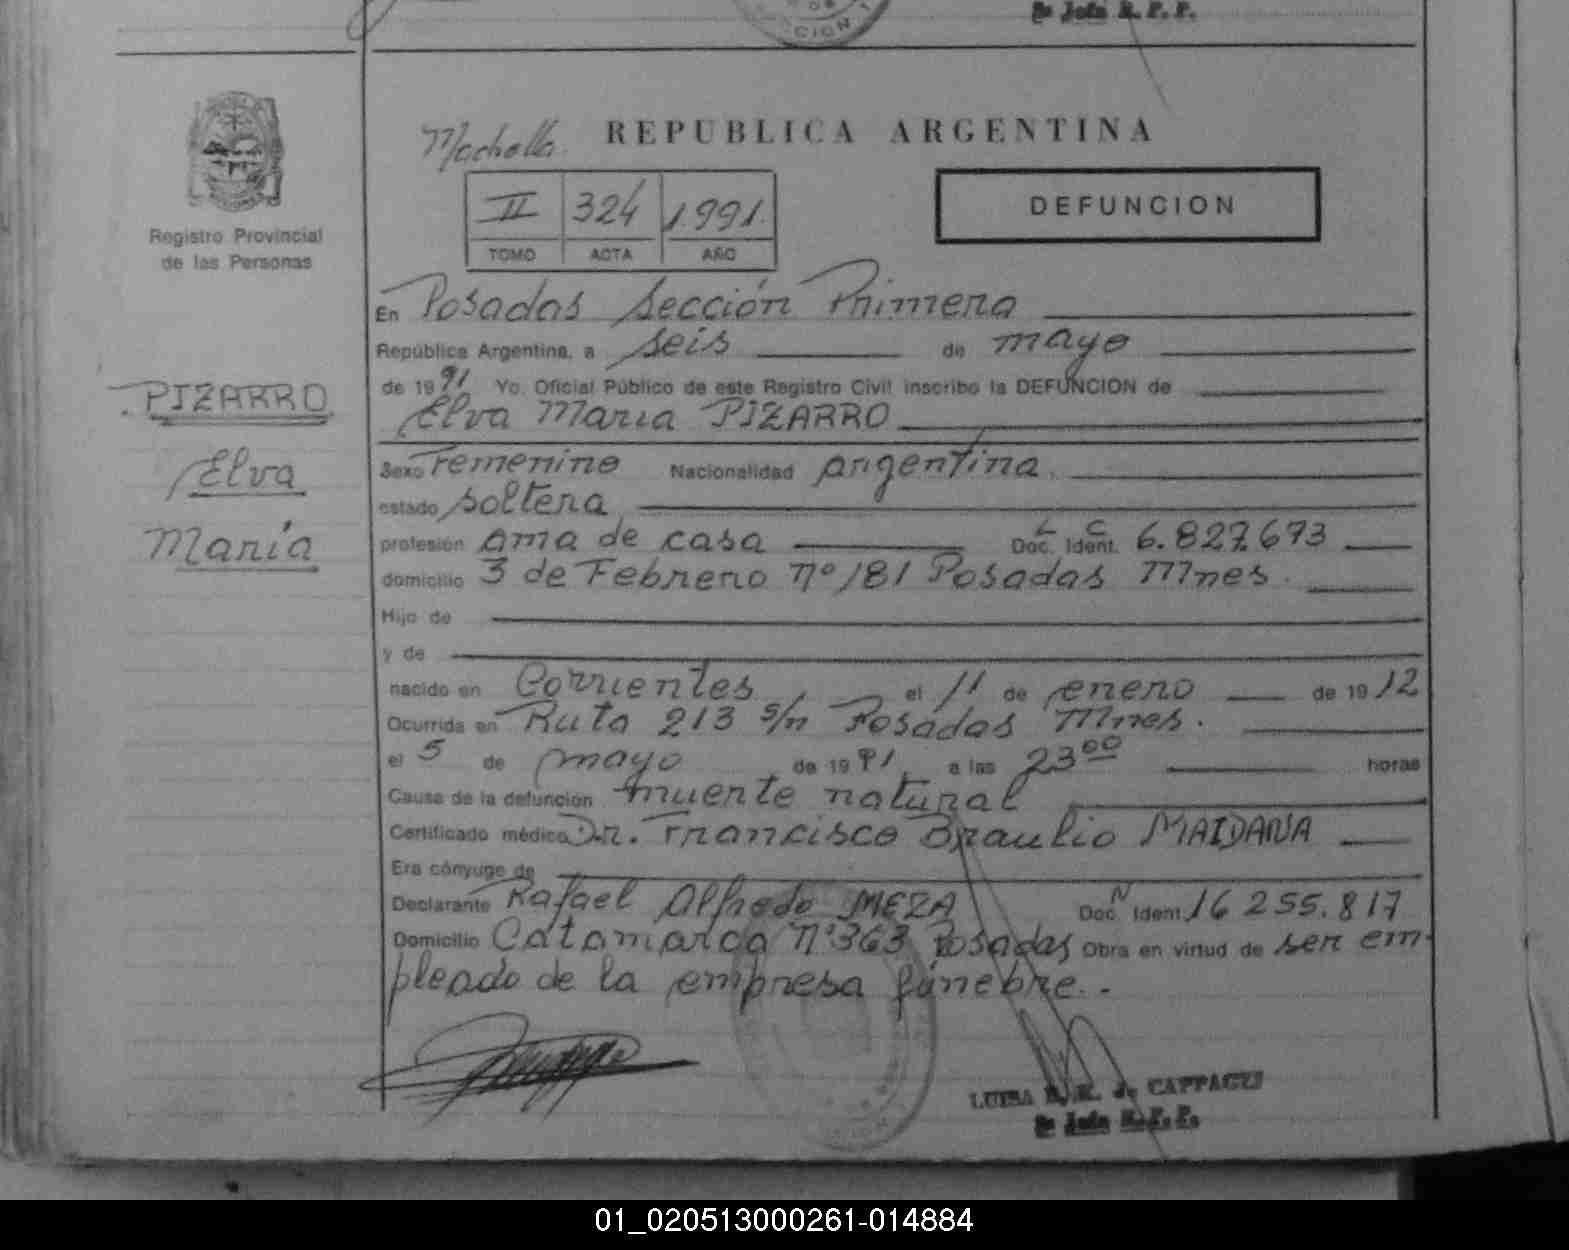 Sº Jefe R. P. P.
REPUBLICA ARGENTINA
II 324 1.991.
TOMO ACTA AÑO
DEFUNCION
Registro Provincial
de las Personas
PIZARRO
Elva
María
En Posadas Sección Primera
República Argentina, a seis de mayo
de 1991 Yo, Oficial Público de este Registro Civil inscribo la DEFUNCION de
Elva Maria PIZARRO
Sexo Femenino Nacionalidad argentina.
estado soltera
profesión ama de casa Doc. Ident. L C 6.827.673
domicilio 3 de Febrero nº 181 Posadas Mnes.
Hijo de
y de
nacido en Corrientes el 11 de enero de 1912
Ocurrida en Ruta 213 s/n Posadas Mnes.
el 5 de mayo de 1991 a las 23 00 horas
Causa de la defunción muerte natural
Certificado médico Dr. Francisco Braulio MAIDANA
Era cónyuge de
Declarante Rafael Alfredo MEZA Doc. N Ident. 16 255.817
Domicilio Catamarca Nº 363 Posadas Obra en virtud de ser em-
pleado de la empresa fúnebre.-
LUISA
01_020513000261-014884